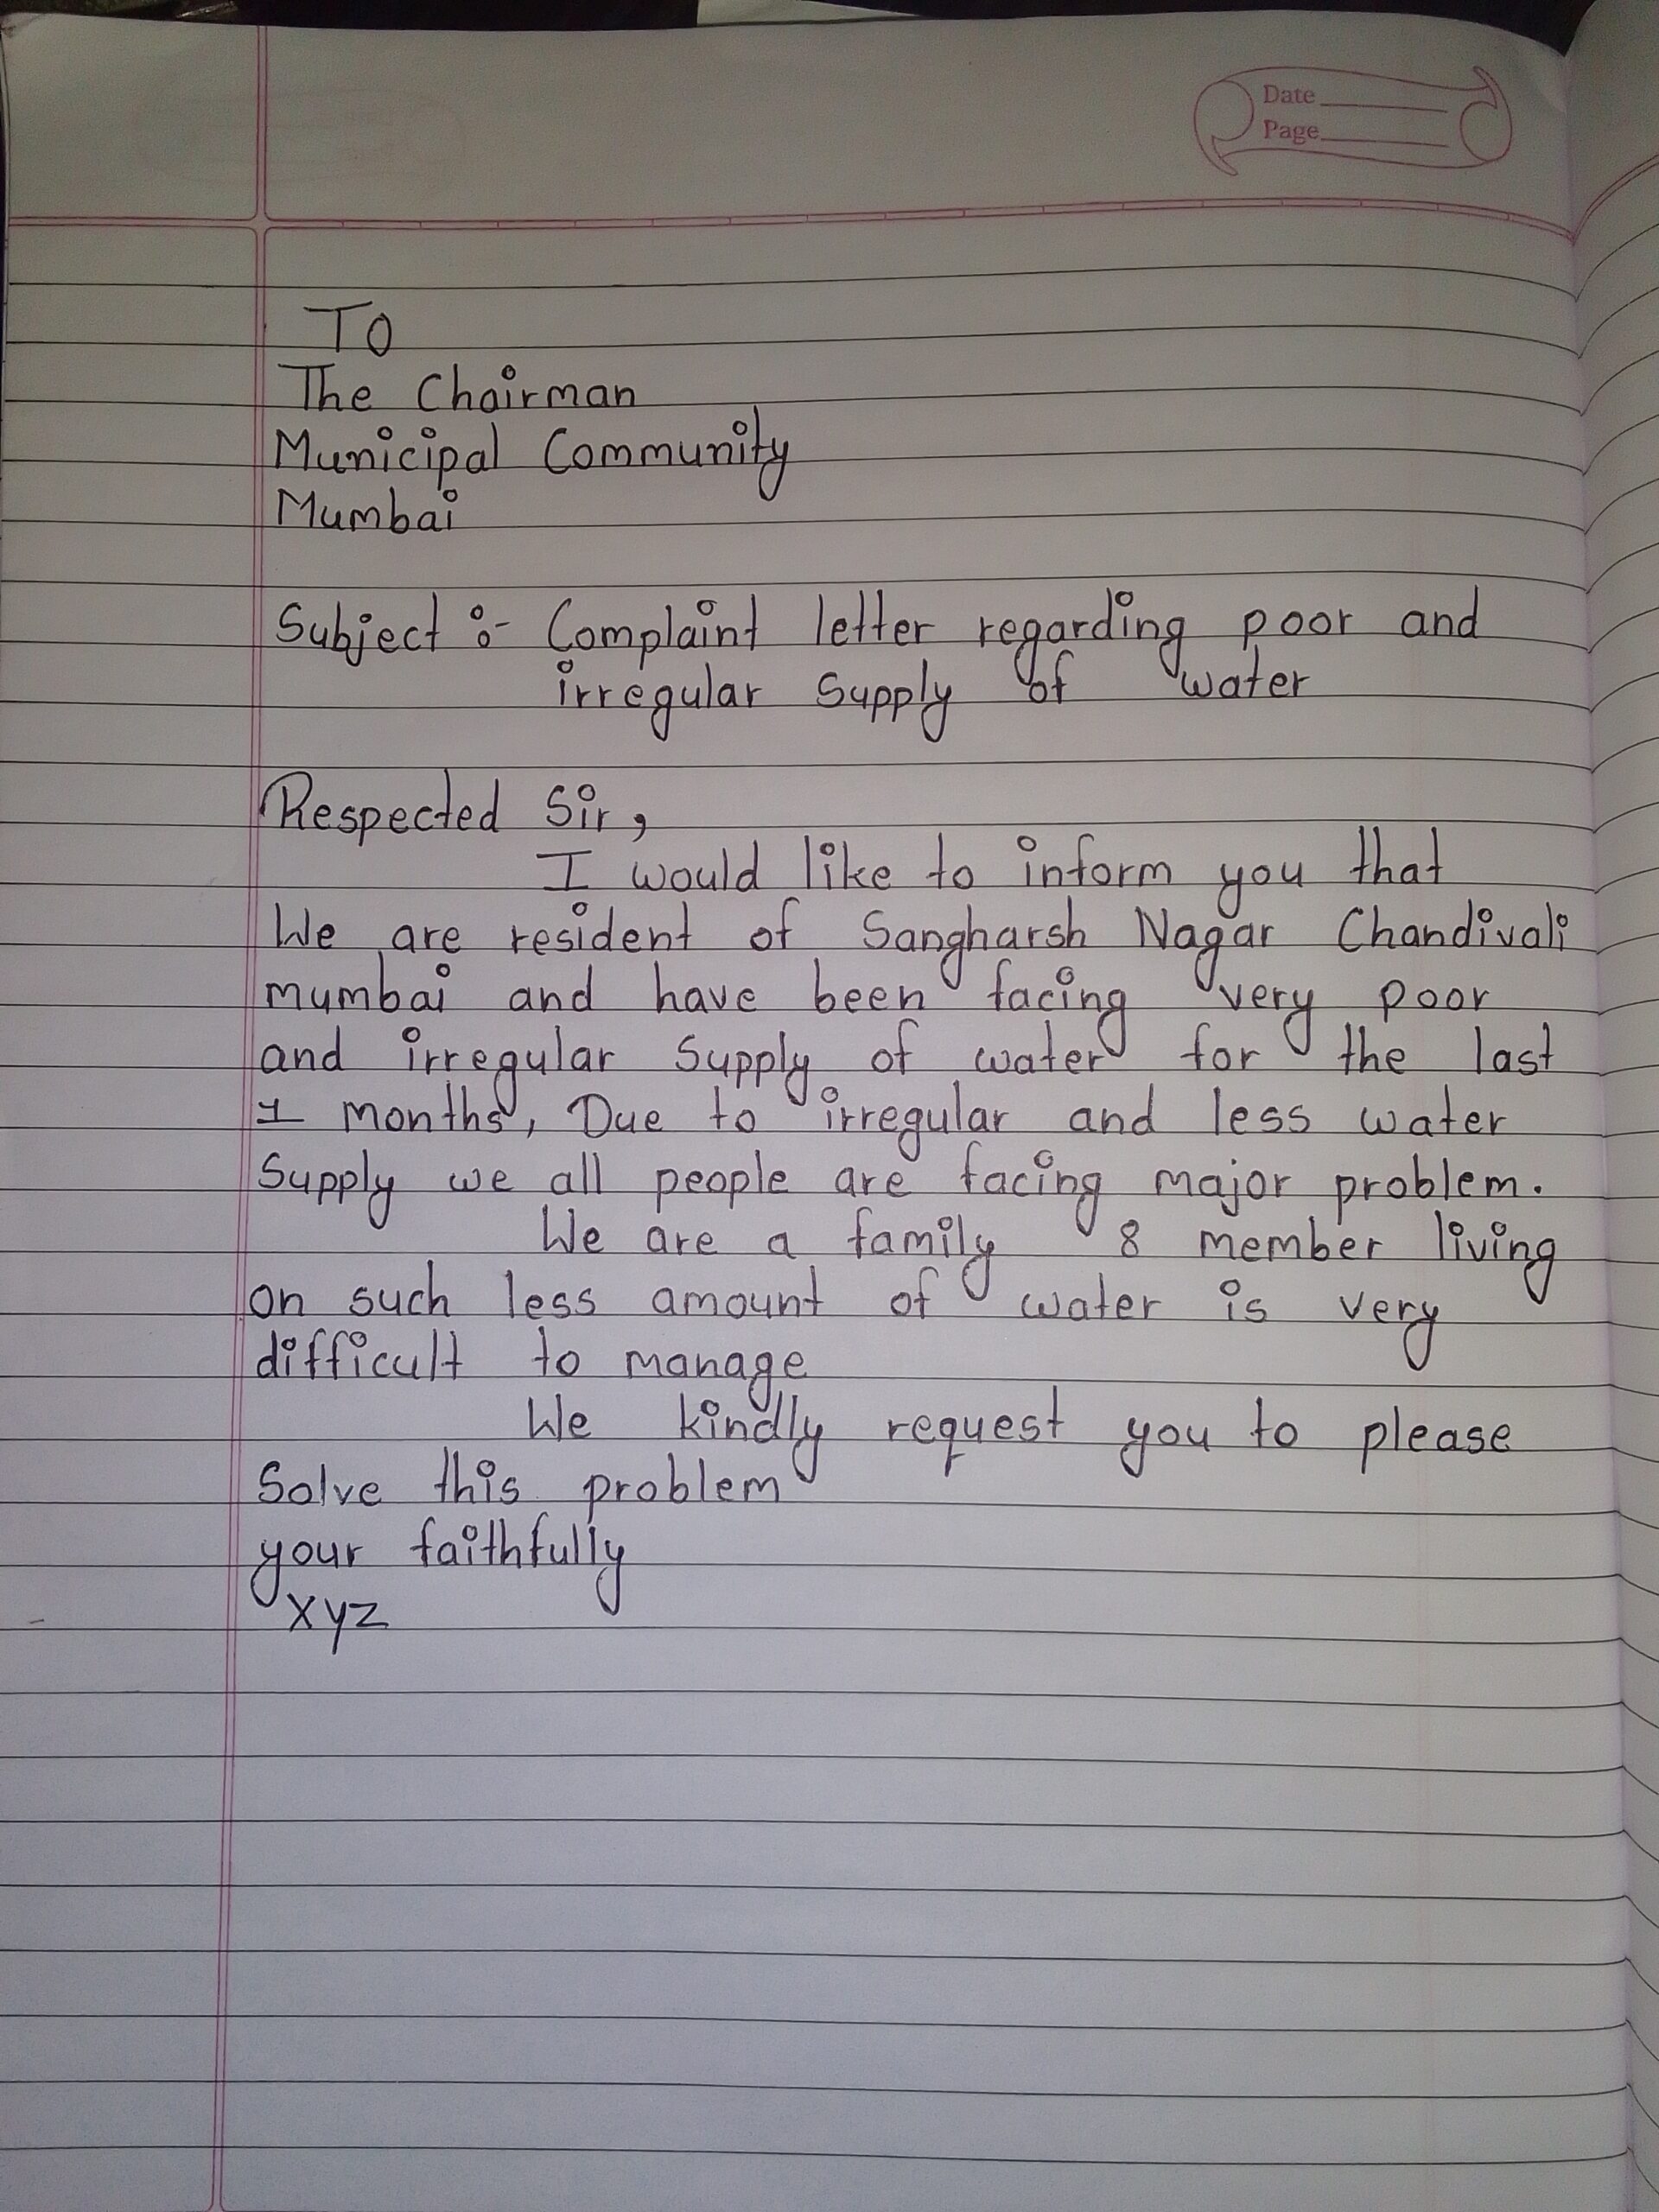 Date
Page
TO
The Chairman
Municipal Community
Mumbai
Subject :- Complaint letter regarding poor and
irregular supply of water
Respected Sir,
I would like to inform you that
We are resident of Sangharsh Nagar Chandivali
mumbai and have been facing very poor
and irregular supply of water for the last
1 months, Due to irregular and less water
Supply we all people are facing major problem.
We are a family 8 member living
on such less amount of water is very
difficult to manage
We kindly request you to please
Solve this problem
your faithfully
XYZ